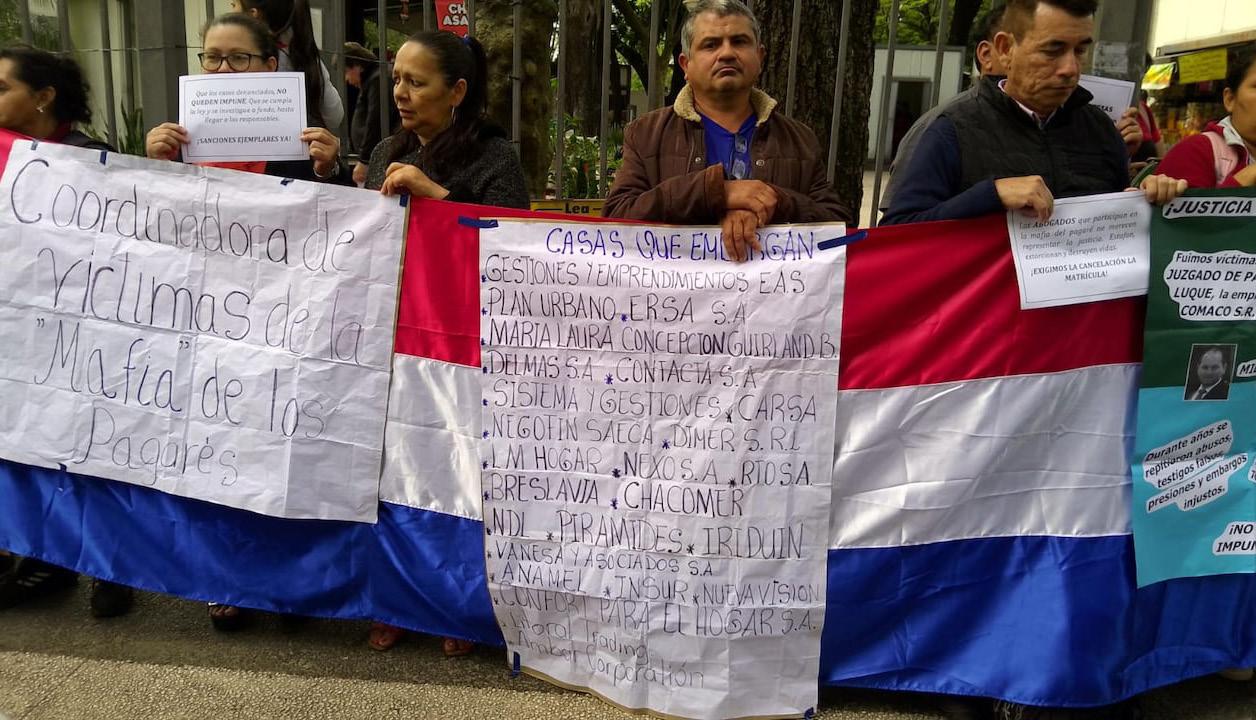 CH
ASA
Que los casos denunciados, NO
QUEDEN IMPUNE. Que se cumpla
la ley y se investigue a fondo, hasta
llegar a los responsables.
¡SANCIONES EJEMPLARES YA!
Coordinadora de
Víctimas de la
"Mafia" de los
Pagarés
Lea
CASAS QUE EMBARGAN
GESTIONES Y EMPRENDIMIENTOS E.A.S
PLAN URBANO * ERSA S.A
MARIA LAURA CONCEPCION GUIRLAND B.
DELMAS S.A * CONTACTA S.A
SISTEMA Y GESTIONES * CARSA
NEGOFIN SAECA * DIMER S.R.L
LM HOGAR * NEXO S.A * RIO S.A.
BRESLAVIA * CHACOMER
NDL * PIRAMIDES * IRIDUIN
VANESA Y ASOCIADOS S.A
ANAMEL * INSUR * NUEVA VISION
CONFOR PARA EL HOGAR S.A.
Litoral Trading
Amber Corporatión
Los ABOGADOS que participan en
la mafia del pagaré no merecen
representar la justicia. Estafan,
extorcionan y destruyen vidas.
¡EXIGIMOS LA CANCELACIÓN LA
MATRÍCULA!
¡JUSTICIA
Fuimos víctimas
JUZGADO DE PA
LUQUE, la empr
COMACO S.R.
MI
Durante años se
repitieron abusos,
testigos falsos,
presiones y embargos
injustos.
¡NO
IMPUN